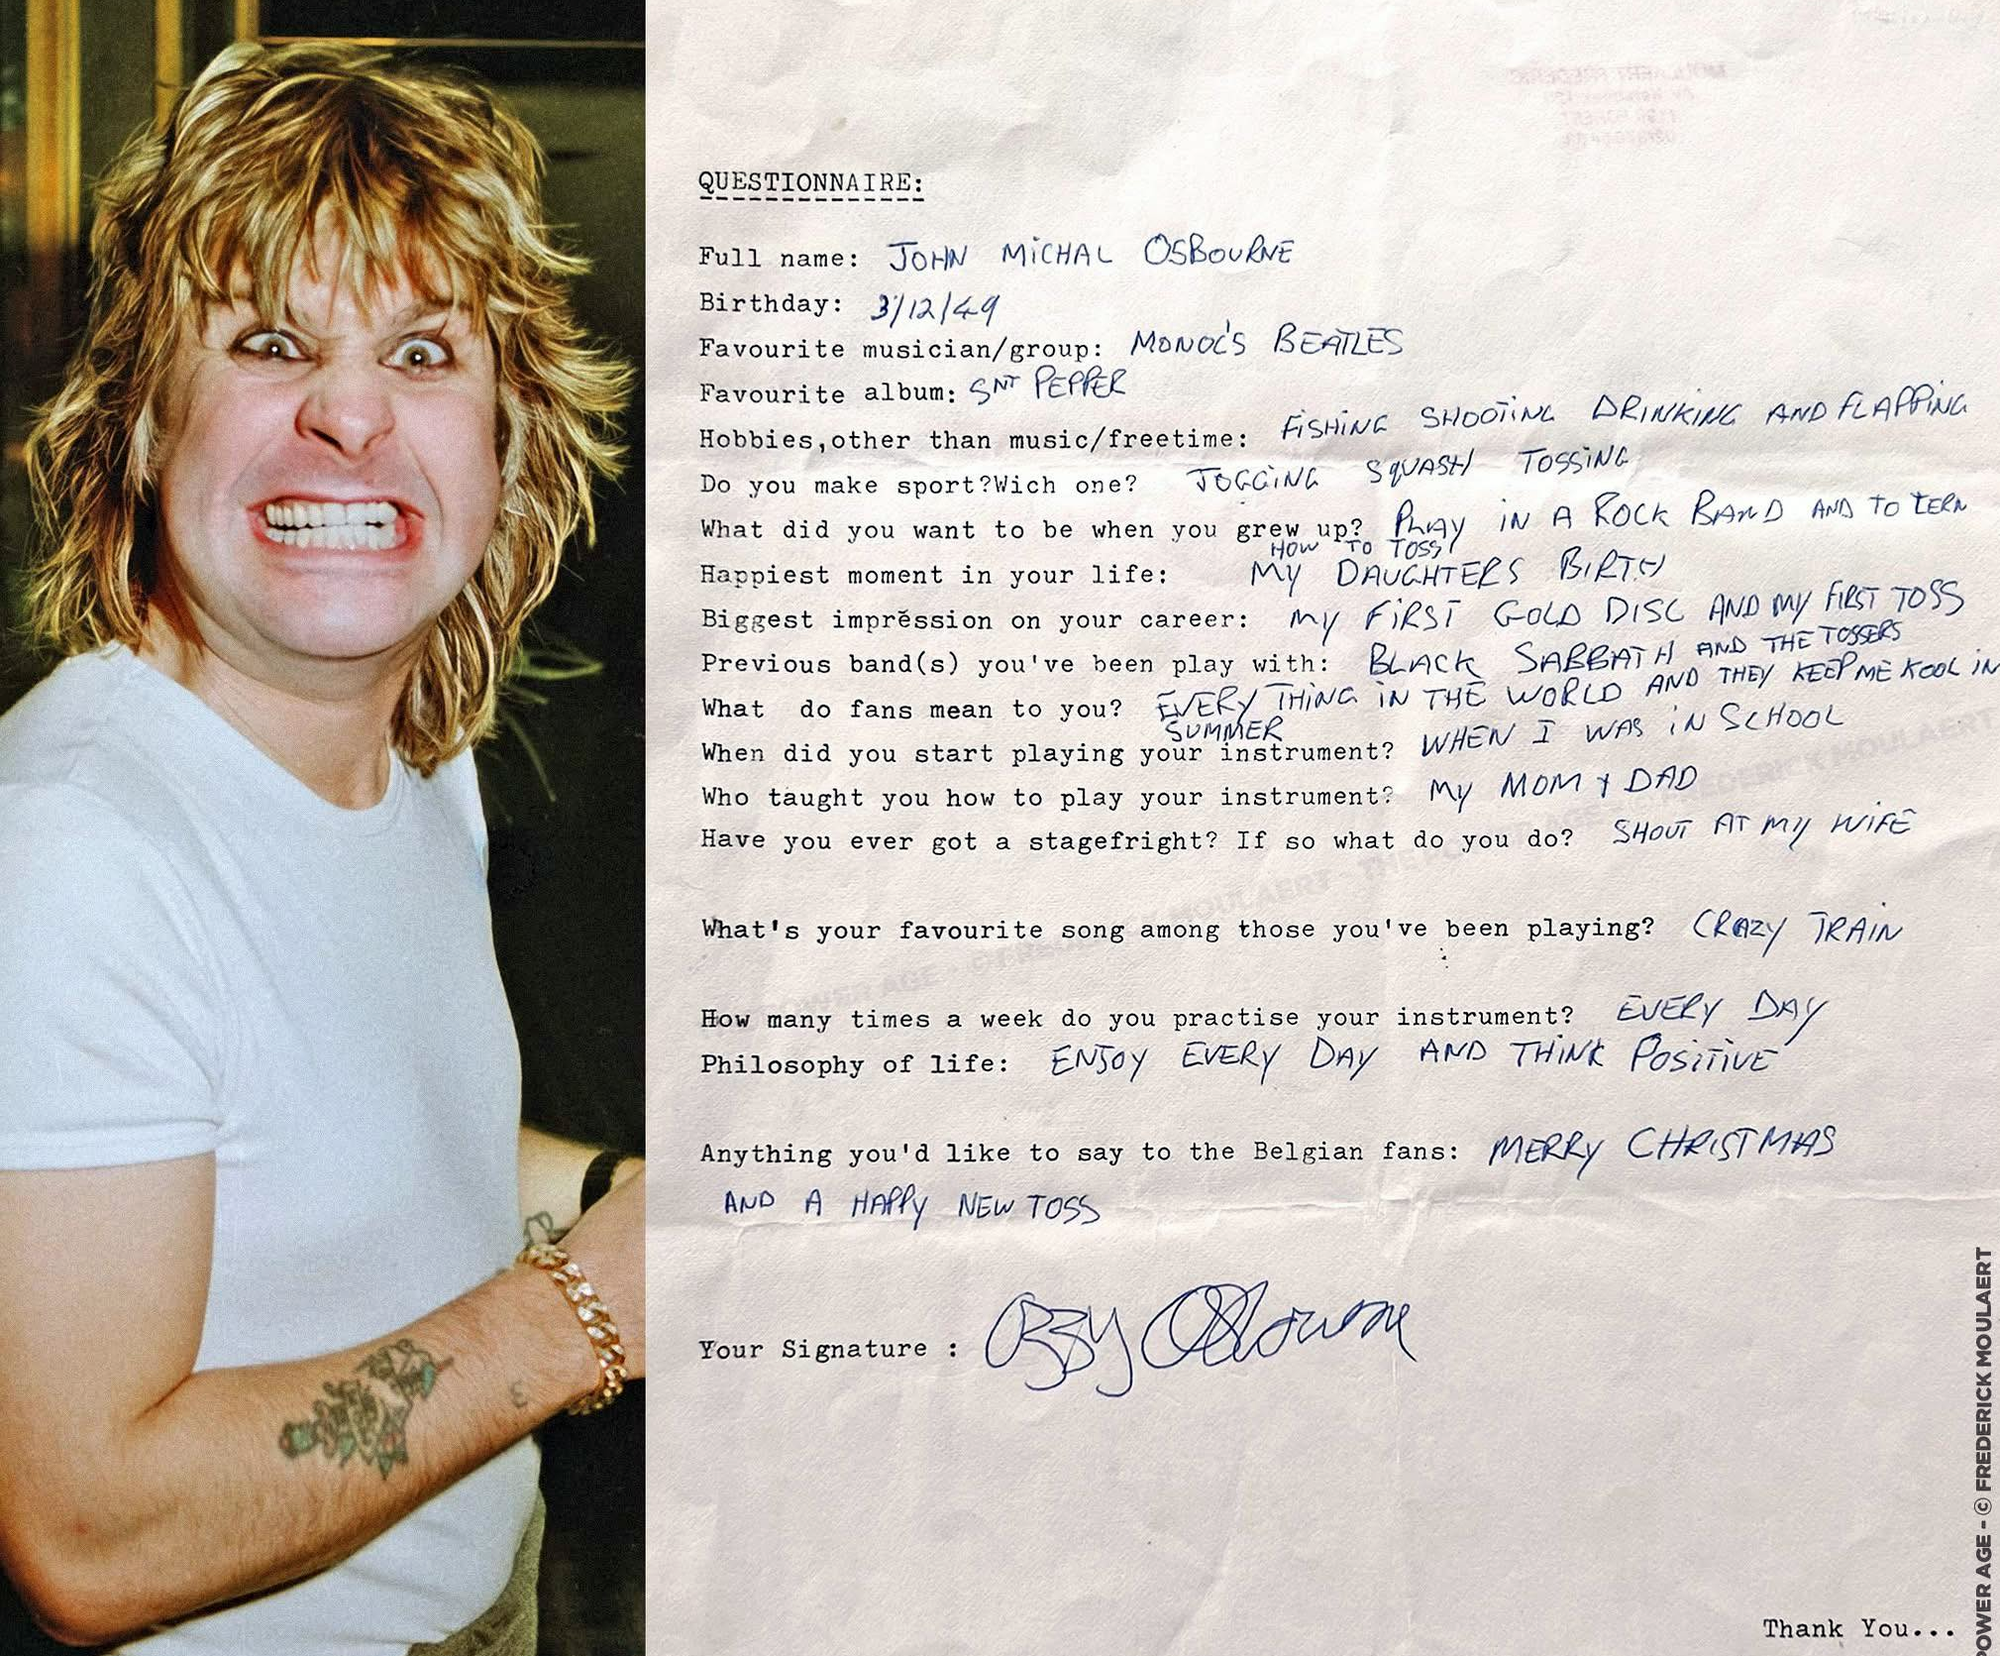 QUESTIONNAIRE:
Full name: JOHN MICHAL OSBOURNE
Birthday: 3/12/49
Favourite musician/group: BEATLES
Favourite album: SNT PEPPER
Hobbies,other than music/freetime: FISHING SHOOTING DRINKING AND FLAPPING
Do you make sport?Wich one? JOGGING SQUASH TOSSING
What did you want to be when you grew up? PLAY IN A ROCK BAND AND TO LERN
HOW TO TOSS
Happiest moment in your life: MY DAUGHTERS BIRTH
Biggest impression on your career: MY FIRST GOLD DISC AND MY FIRST TOSS
Previous band(s) you've been play with: BLACK SABBATH AND THE TOSSERS
What do fans mean to you? EVERY THING IN THE WORLD AND THEY KEEP ME KOOL IN
SUMMER
When did you start playing your instrument? WHEN I WAS IN SCHOOL
Who taught you how to play your instrument? MY MOM & DAD
Have you ever got a stagefright? If so what do you do? SHOUT AT MY WIFE
What's your favourite song among those you've been playing? CRAZY TRAIN
How many times a week do you practise your instrument? EVERY DAY
Philosophy of life: ENJOY EVERY DAY AND THINK POSITIVE
Anything you'd like to say to the Belgian fans: MERRY CHRISTMAS
AND A HAPPY NEW TOSS
Your Signature : Ozzy Osbourne
Thank You...
POWER AGE - © FREDERICK MOULAERT